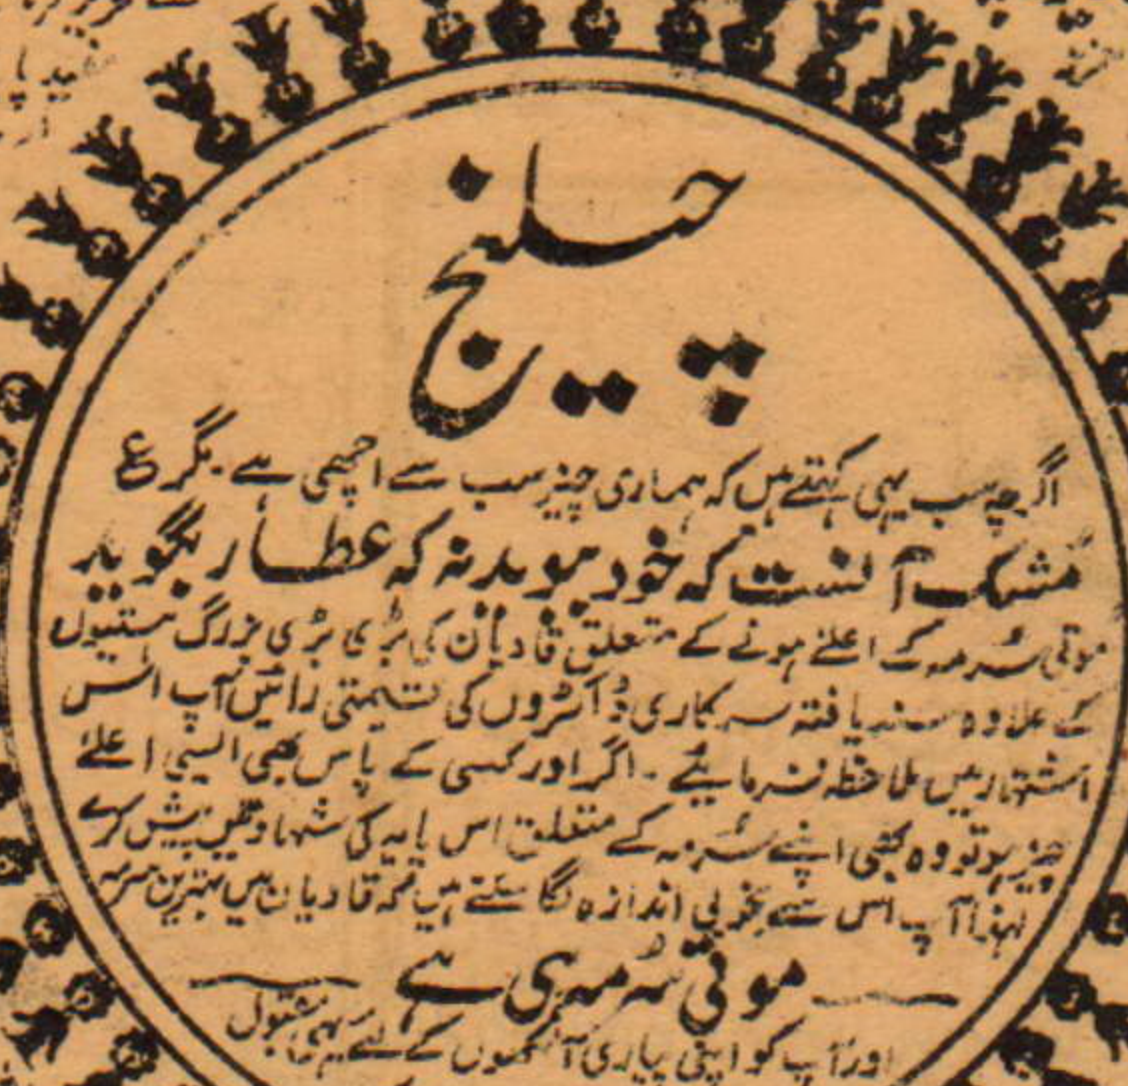 چیلنج
اگرچہ سب یہی کہتے ہیں کہ ہماری چیز سب سے اچھی ہے۔ مگر ع
مشک آنست کہ خود ببوید نہ کہ عطار بگوید
موتی سُرمہ کے اعلےٰ ہونے کے متعلق قادیان کی بڑی بڑی بزرگ ہستیوں
کے علاوہ سند یافتہ سرکاری ڈاکٹروں کی قیمتی رائیں آپ اس
اشتہار میں ملاحظہ فرمائیے۔ اگر اور کسی کے پاس بھی ایسی اعلےٰ
چیز ہو تو وہ بھی اپنے سُرمہ کے متعلق اس پایہ کی شہادتیں پیش کرے
لہٰذا آپ اس سے بخوبی اندازہ لگا سکتے ہیں کہ قادیان میں بہترین سرمہ
موتی سُرمہ ہی ہے
اور آپ کو اپنی پیاری آنکھوں کے لئے یہی مقبول